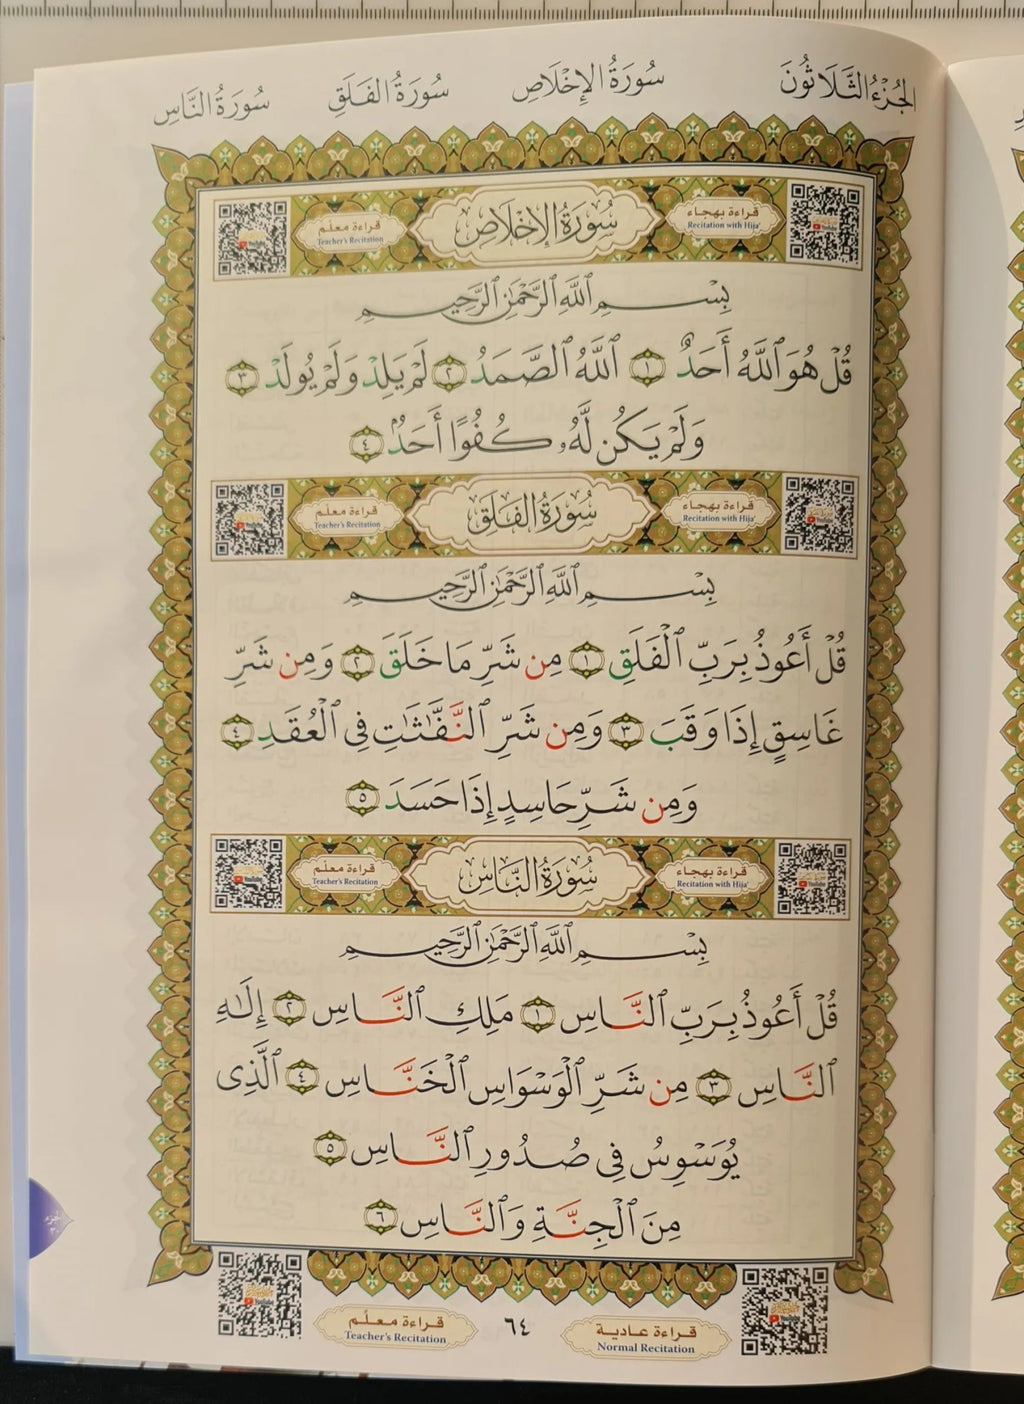 الجُزْءُ الثَّلَاثُونَ سُورَةُ الإِخْلَاصِ سُورَةُ الفَلَقِ سُورَةُ النَّاسِ
قراءة بهجاء
Recitation with Hija'
سُورَةُ الإِخْلَاصِ
قراءة معلّم
Teacher's Recitation
بِسْمِ ٱللَّهِ ٱلرَّحْمَٰنِ ٱلرَّحِيمِ
قُلْ هُوَ ٱللَّهُ أَحَدٌ ١ ٱللَّهُ ٱلصَّمَدُ ٢ لَمْ يَلِدْ وَلَمْ يُولَدْ ٣
وَلَمْ يَكُن لَّهُۥ كُفُوًا أَحَدٌۢ ٤
قراءة بهجاء
Recitation with Hija'
سُورَةُ الفَلَقِ
قراءة معلّم
Teacher's Recitation
بِسْمِ ٱللَّهِ ٱلرَّحْمَٰنِ ٱلرَّحِيمِ
قُلْ أَعُوذُ بِرَبِّ ٱلْفَلَقِ ١ مِن شَرِّ مَا خَلَقَ ٢ وَمِن شَرِّ
غَاسِقٍ إِذَا وَقَبَ ٣ وَمِن شَرِّ ٱلنَّفَّٰثَٰتِ فِى ٱلْعُقَدِ ٤
وَمِن شَرِّ حَاسِدٍ إِذَا حَسَدَ ٥
قراءة بهجاء
Recitation with Hija'
سُورَةُ النَّاسِ
قراءة معلّم
Teacher's Recitation
بِسْمِ ٱللَّهِ ٱلرَّحْمَٰنِ ٱلرَّحِيمِ
قُلْ أَعُوذُ بِرَبِّ ٱلنَّاسِ ١ مَلِكِ ٱلنَّاسِ ٢ إِلَٰهِ
ٱلنَّاسِ ٣ مِن شَرِّ ٱلْوَسْوَاسِ ٱلْخَنَّاسِ ٤ ٱلَّذِى
يُوَسْوِسُ فِى صُدُورِ ٱلنَّاسِ ٥
مِنَ ٱلْجِنَّةِ وَٱلنَّاسِ ٦
قراءة عادية
Normal Recitation
٦٤
قراءة معلّم
Teacher's Recitation